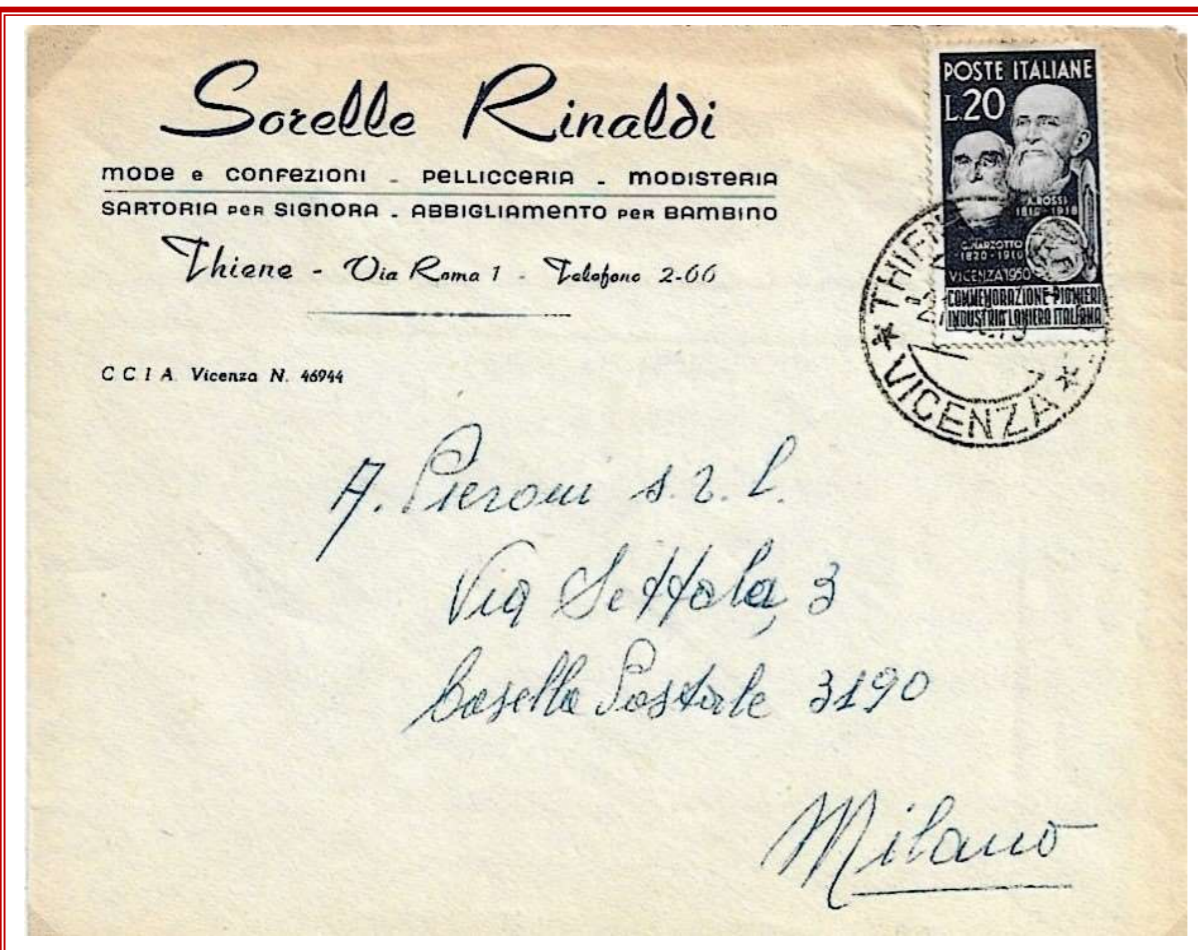 Sorelle Rinaldi
MODE e CONFEZIONI - PELLICCERIA - MODISTERIA
SARTORIA PER SIGNORA - ABBIGLIAMENTO PER BAMBINO
Thiene - Via Roma 1 - Telefono 2-66
C C I A Vicenza N. 46944
POSTE ITALIANE
L.20
A. ROSSI
1819-1918
G. MARZOTTO
1820-1910
VICENZA 1950
COMMEMORAZIONE PIONIERI
INDUSTRIA LANIERA ITALIANA
* THIEN
VICENZA *
A. Pieroni s.r.l.
Via Settala, 3
Casella Postale 3190
Milano